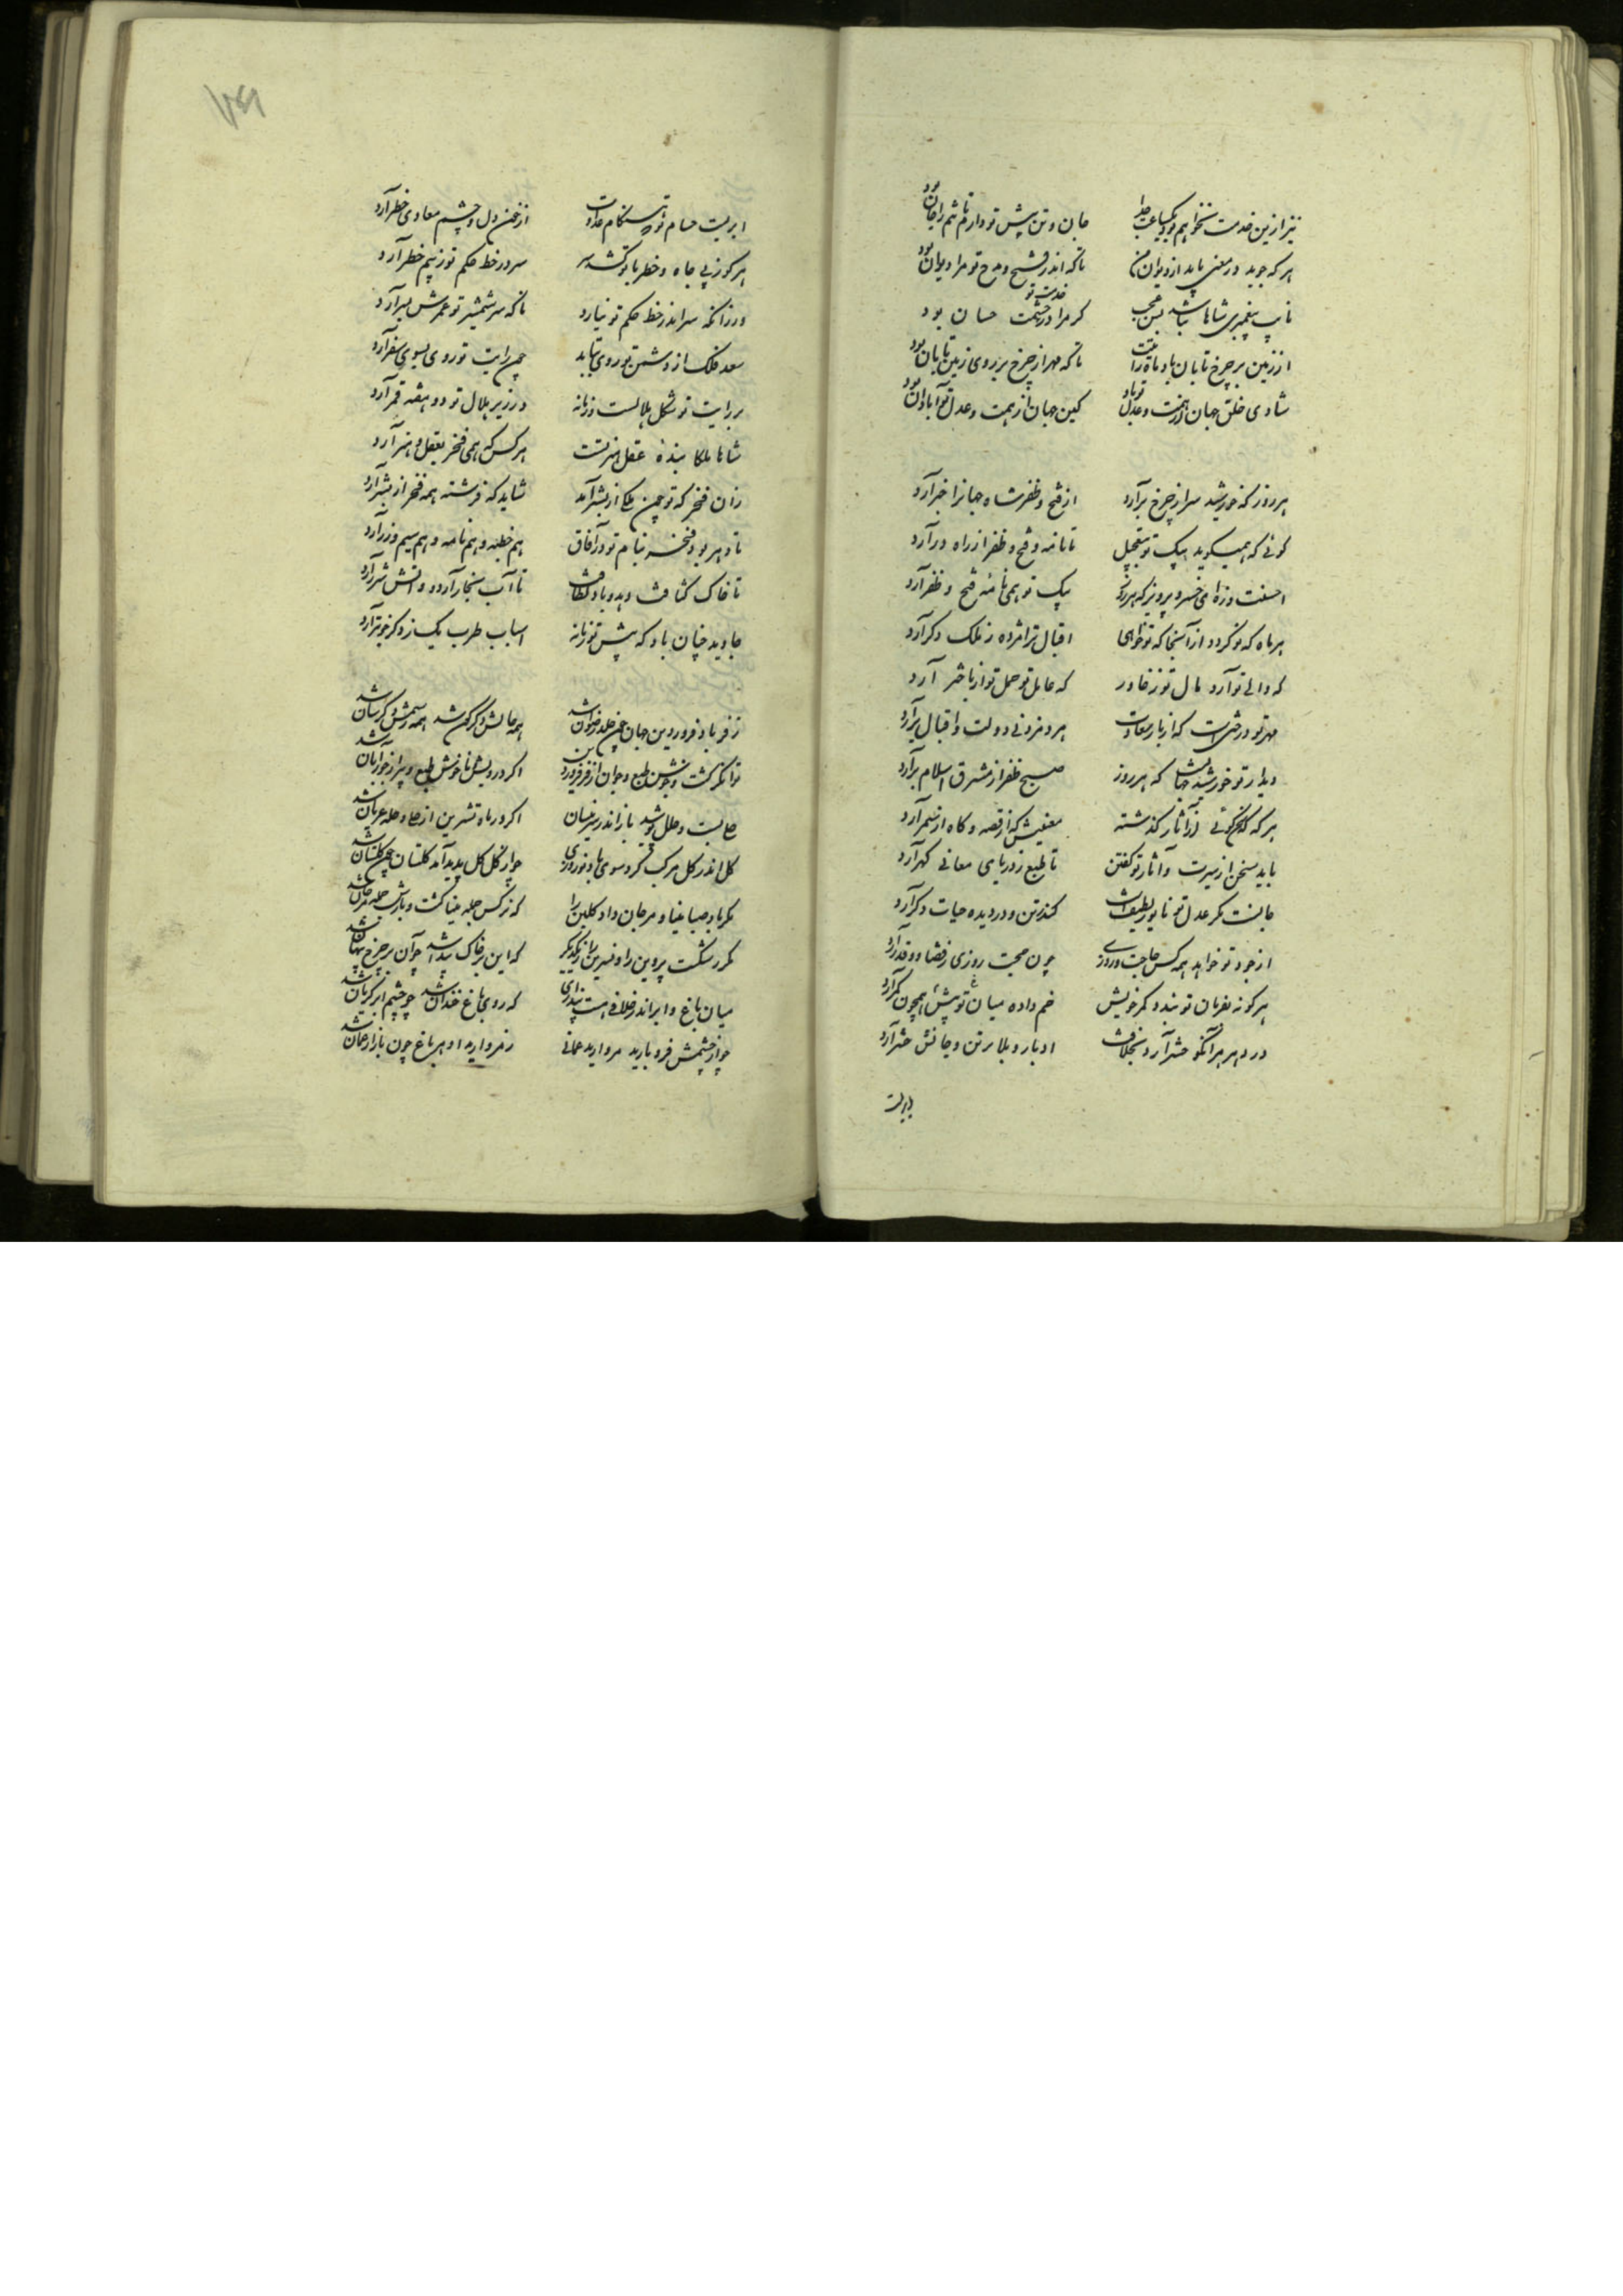 نیز ازین خدمت نخواهم بود یکساعت جدا جان و تن پیش تو دارم تا تنم را جان بود
هر که جوید در معنی یابد از دیوان من تا که اندر فتح و مدح تو مرا دیوان بود
نایب پیغمبری شاها نباشد بس عجب کر مرا در خدمت تو حشمت حسان بود
از زمین بر چرخ تابان باد ماه رایتت تا که مهر از چرخ بر روی زمین تابان بود
شادی خلق جهان از همت و عدل تو باد کین جهان از همت و عدل تو آبادان بود
هر روز که خورشید سر از چرخ برآرد از فتح و ظفر شاه جهانرا خبر آرد
کوئی که همیکوید پیک تو بتعجیل تا نامه فتح و ظفر از راه درآرد
احسنت و زه ای خسرو پرویز که هر روز پیک تو همی نامه فتح و ظفر آرد
هر ماه که نو کردد از آنجا که تو خواهی اقبال ترا مژده ز ملک دکر آرد
که والی تو آرد مال تو ز خاور که عامل تو حمل تو از باختر آرد
مهر تو درختی است که از بار سعادت هر دم زدنی دولت و اقبال برآرد
دیدار تو خورشید جهانست که هر روز صبح ظفر از مشرق اسلام برآرد
هر که که سخن کوئی از آثار کذشته معنیش که از قصه و کاه از سمر آرد
باید سخن از سیرت و آثار تو کفتن تا طبع ز دریای معانی کهر آرد
جانست مکر عدل تو تا بوی لطیفست کندر تن و در دیده حیات دکر آرد
از جود تو خواهد همه کس حاجت و روزی چون حجت روزی ز قضا و قدر آرد
هر کو نه بفرمان تو بندد کمر خویش خم داده میان پیش تو همچون کمر آرد
در دهر هر آنکو حشر آرد بخلافت ادبار و بلا بر تن و جانش حشر آرد
ابریست
ابریست حسام تو که هنکام عداوت از خون دل و چشم معادی خطر آرد
هر کو ز پی جاه و خطر با تو کشد سر سر در خط حکم تو ز بیم خطر آرد
ور زانکه سر اندر خط حکم تو نیارد ناکه سر شمشیر تو عمرش بسر آرد
سعد فلک از دشمن تو روی بتابد چون رایت تو روی بسوی سفر آرد
بر رایت تو شکل هلالست و زمانه در زیر هلال تو دو هفته قمر آرد
شاها ملکا بنده عقل و هنر تست هر کس که همی فخر بعقل و هنر آرد
زان فخر که تو چون ملکی از بشر آمد شاید که فرشته همه فخر از بشر آرد
تا دهر بود فخر بنام تو در آفاق هم خطبه و هم نامه و هم سیم و زر آرد
تا خاک کثافت دهد و باد لطافت تا آب بخار آرد و آتش شرر آرد
جاوید چنان باد که پیش تو زمانه اسباب طرب یک ز دکر خوبتر آرد
ز فر باد فروردین جهان چون خلد رضوان شد همه حالش دکرکون شد همه رسمش دکرسان شد
توانکر کشت و خوش طبع و جوان از فر فروردین اکر درویش و ناخوش طبع و پیر از جور آبان شد
حلی بست و حلل پوشید باز اندر مه نیسان اکر در ماه تشرین از حلی و حله عریان شد
کل اندر کل مرکب کرد سوی باد نوروزی چو از کل کل پدید آمد کلستان چون کلستان شد
مکر باد صبا مینا و مرجان داد کلبن را که نرکس جمله مینا کشت و بارش جمله مرجان شد
مکر رشکست پروین را و نسرین را ز یکدیکر که این بر خاک پیدا شد چو آن بر چرخ پنهان شد
میان باغ و ابر اندر خلافی هست پنداری که روی باغ خندان شد چو چشم ابر کریان شد
چو از چشمش فرو بارید مروارید عمانی ز مروارید او هر باغ چون بازار عمان شد